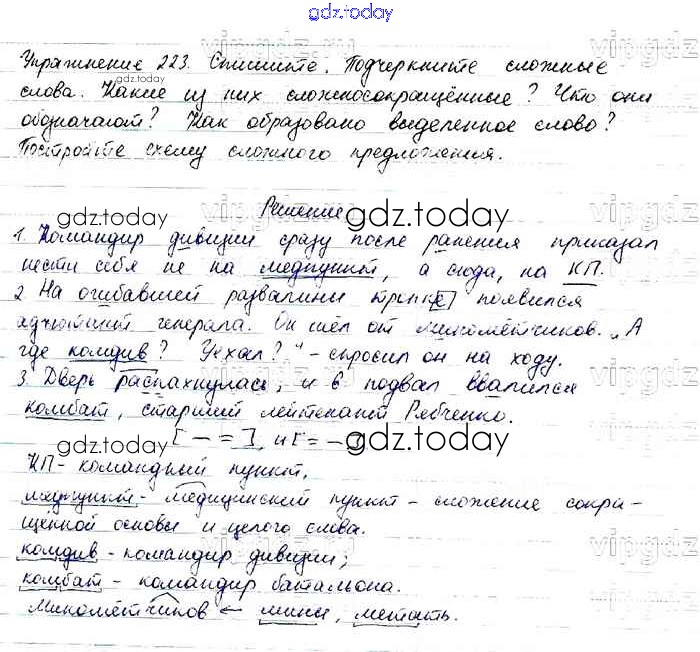 gdz.today
Упражнение 223. Спишите. Подчеркните сложные
слова. Какие из них сложносокращённые? Что они
обозначают? Как образовано выделенное слово?
Постройте схему сложного предложения.
Решение
1. Командир дивизии сразу после ранения приказал
нести себя не на медпункт, а сюда, на КП.
2. На огибавшей развалины тропке появился
адъютант генерала. Он шёл от миномётчиков. „А
где комдив? Уехал?" - спросил он на ходу.
3. Дверь распахнулась, и в подвал ввалился
комбат, старший лейтенант Рябченко.
[ - = ], и [ = - ].
КП - командный пункт,
медпункт - медицинский пункт - сложение сокра-
щенной основы и целого слова.
комдив - командир дивизии;
комбат - командир батальона.
Миномётчиков ← мины, метать.
gdz.today
gdz.today
gdz.today
gdz.today
gdz.today
vipgdz.ru
vipgdz.ru
vipgdz.ru
vipgdz.ru
vipgdz
vipgdz
vipgdz
vipgdz